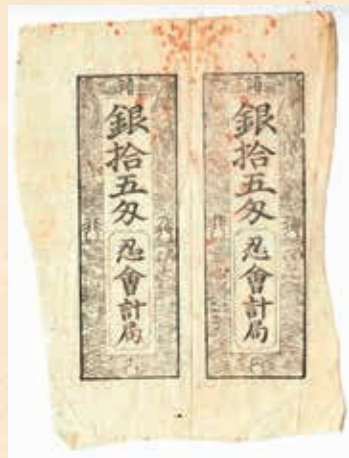 銀拾五匁
忍會計局
銀拾五匁
忍會計局